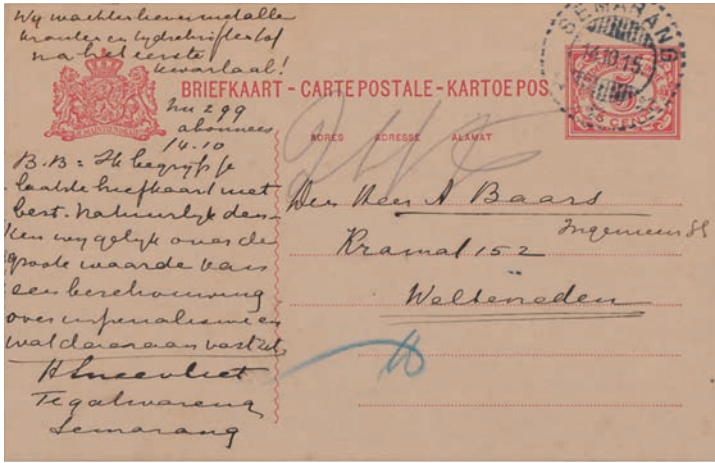 Wij wachten liever met alle
kranten en tijdschriften tot
na het eerste
kwartaal!
SEMARANG
14.10.15.
JE MAINTIENDRAI
BRIEFKAART - CARTE POSTALE - KARTOE POS
5
CENT
nu 299
abonnees
14.10
ADRES ADRESSE ALAMAT
B.B: Ik begrijp je
laatste briefkaart niet
best. Natuurlijk den-
ken wij gelijk over de
groote waarde van
een beschouwing
over imperialisme en
wat daaraan vastzit.
HSneevliet
Tegalwareng
Semarang
Den Heer A Baars
Ingenieur SS
Kramat 152
Weltevreden